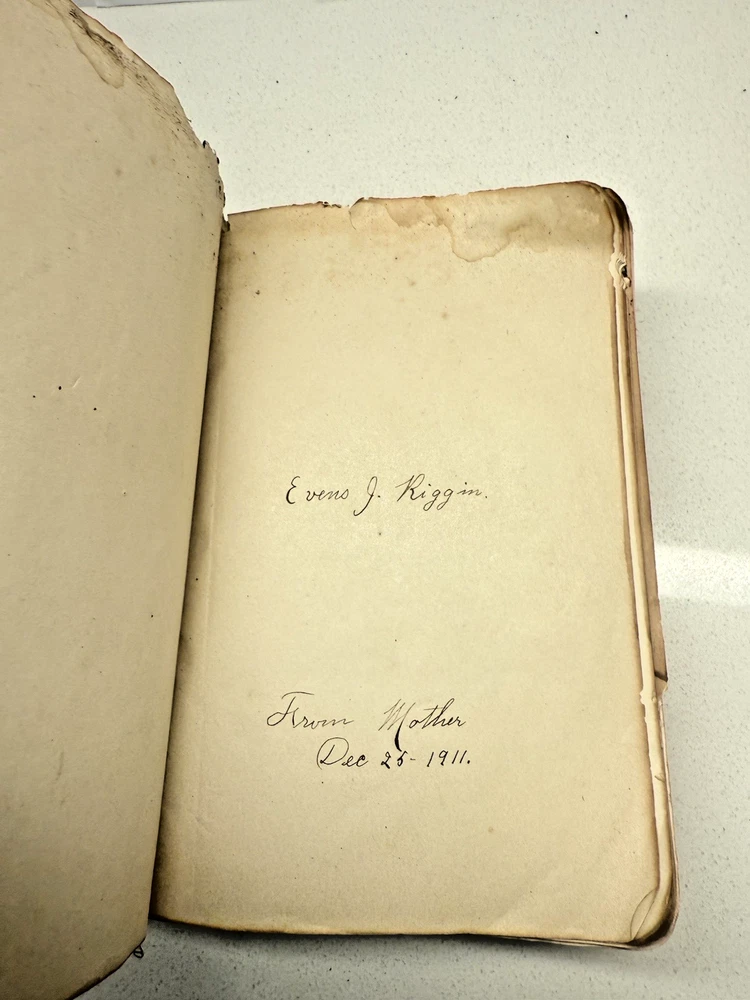 Evens J. Riggin.
From Mother
Dec 25- 1911.